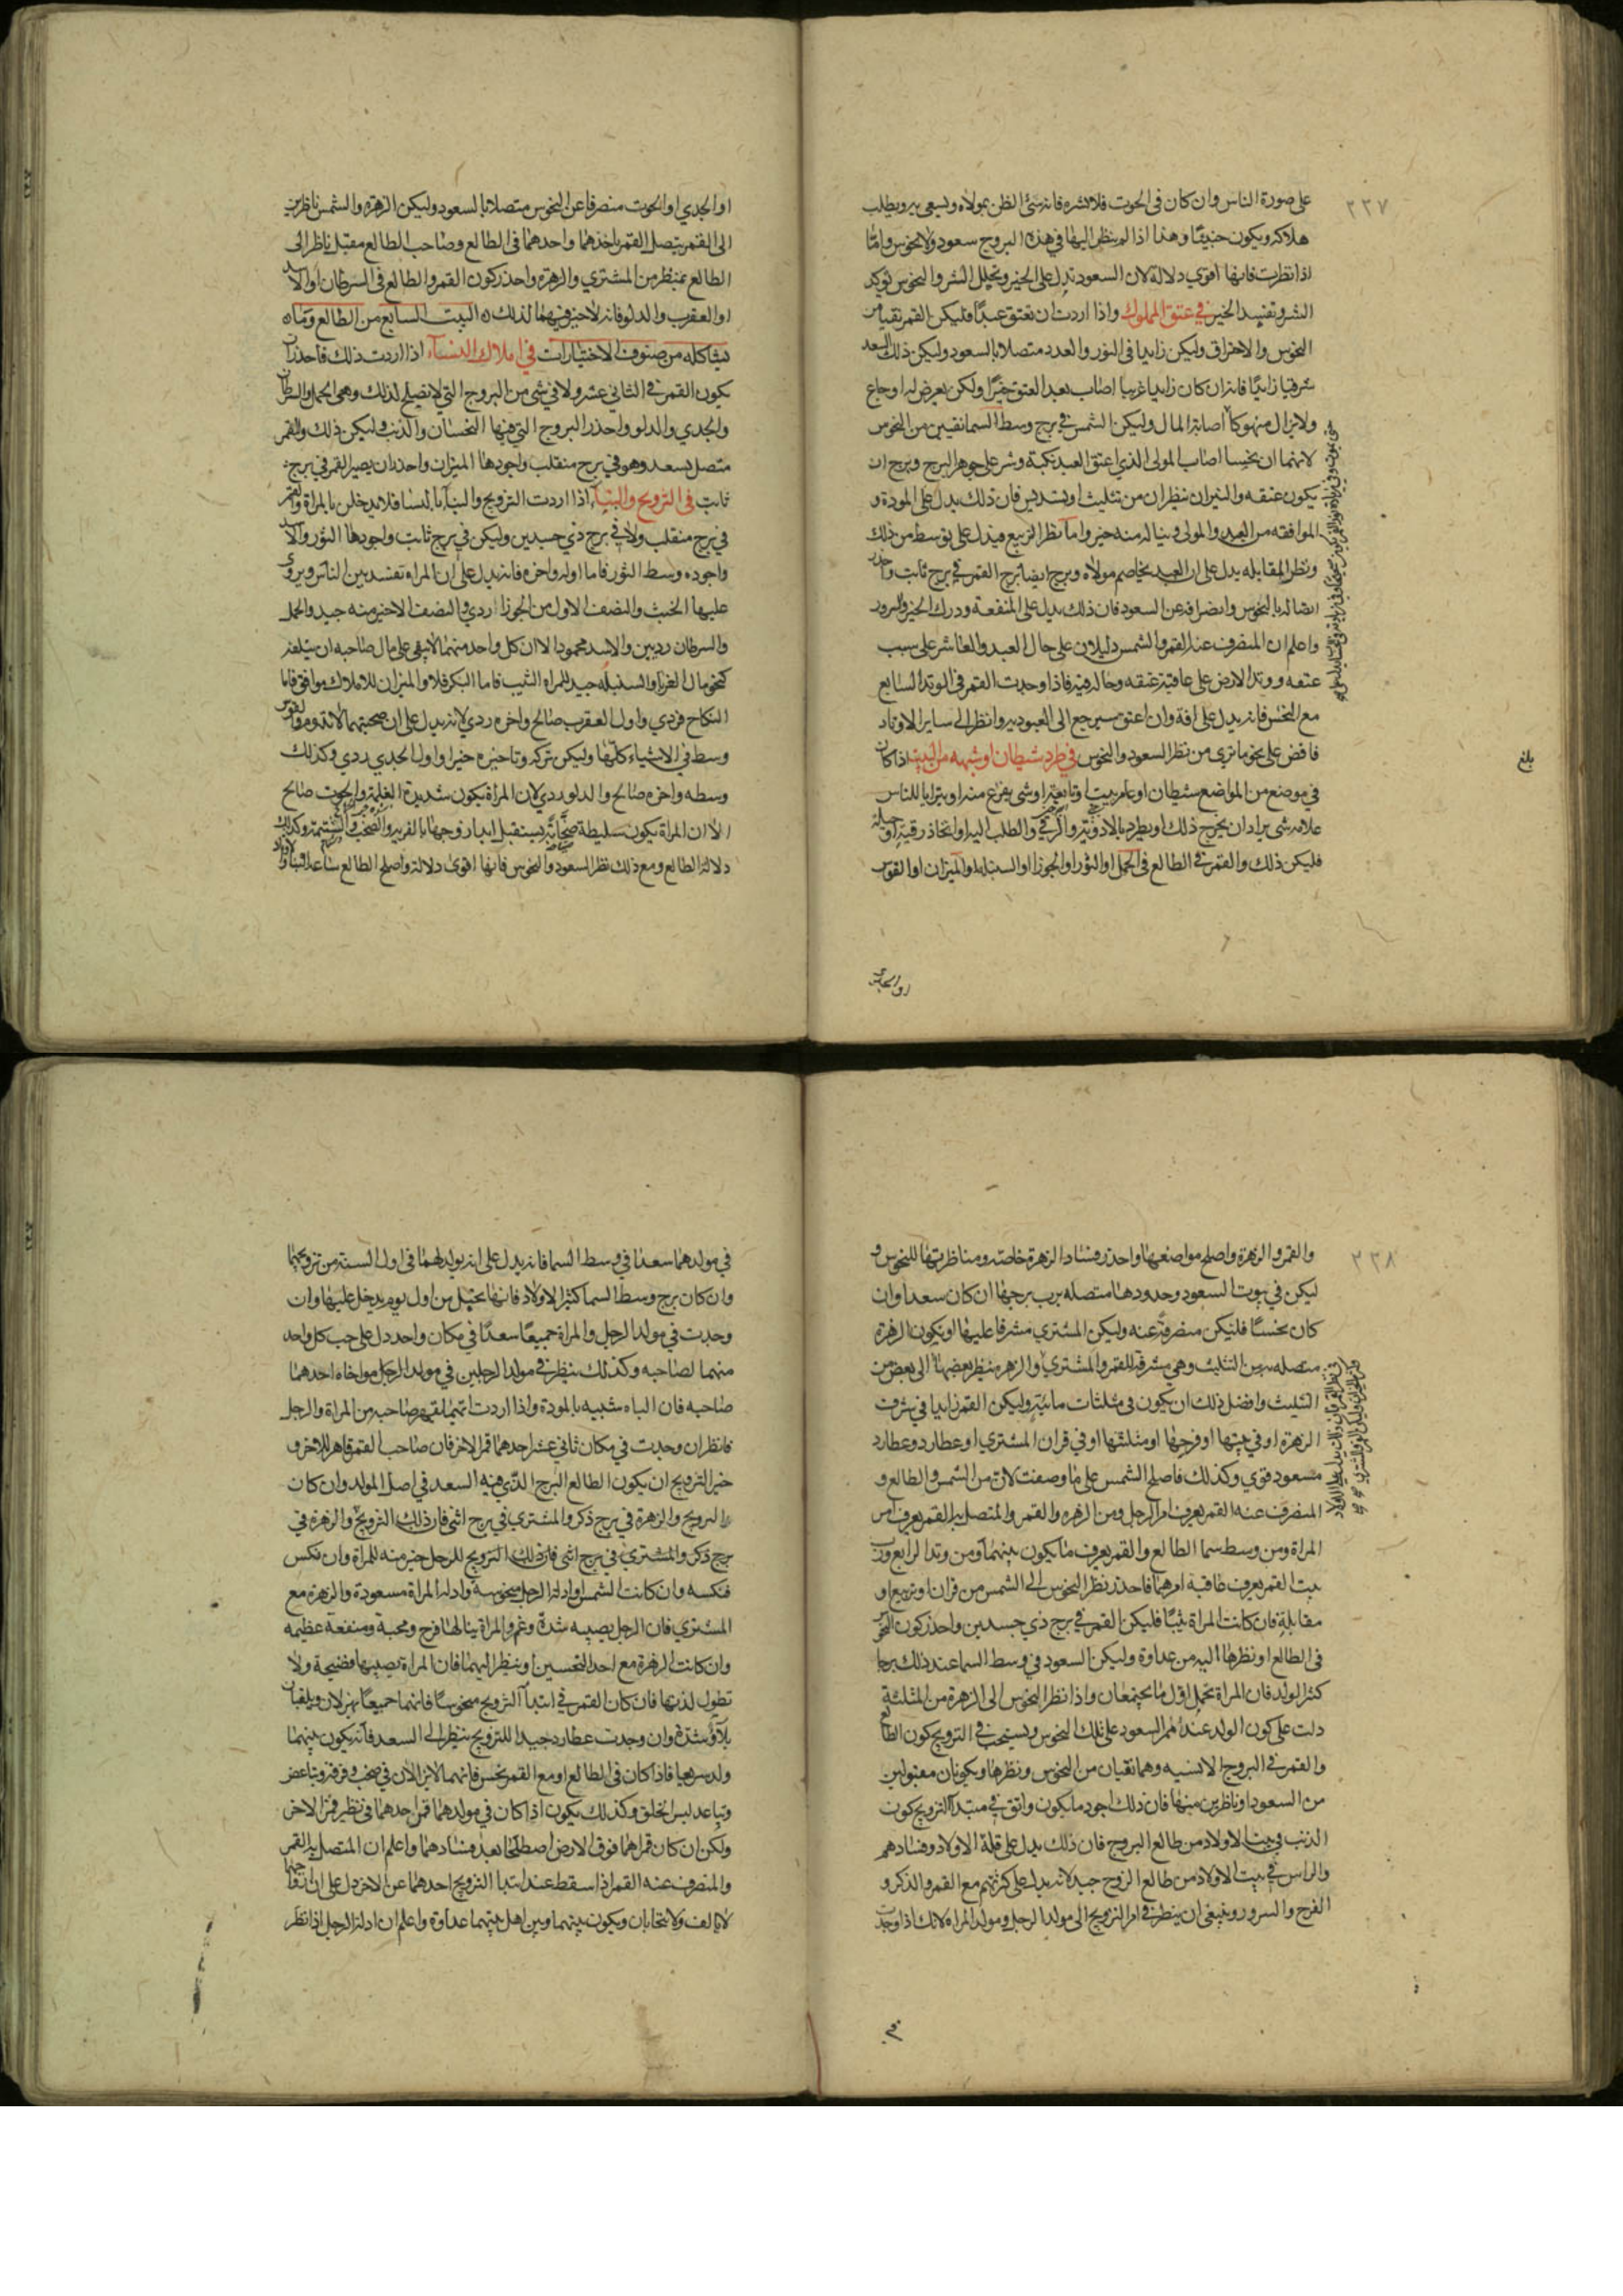 ٢٣٧
على صورة الناس وان كان في الحوت فلا تشره فانه سئ الظن بمولاه ويسعى به ويطلب
هلاكه ويكون خبيثا وهذا اذا لم ينظر اليها في هذه البروج سعود ولا نحوس واما
اذا نظرت فانها اقوى دلالة لان السعود تدل على الخير وتحلل الشر والنحوس توكد
الشر وتفسد الخير في عتق المملوك واذا اردت ان تعتق عبدا فليكن القمر نقيا من
النحوس والاحتراق وليكن زايدا في النور والعدد متصلا بالسعود وليكن ذلك السعد
شرقيا زايدا فانه ان كان زايدا غربيا اصاب بعد العتق خيرا ولكن يعرض له اوجاع
ولا يزال منهوكا اصابة المال وليكن الشمس في برج وسط السما نقيين من النحوس
لانهما ان نحسا اصاب المولى الذي اعتق العبد نكبة وشر على جوهر البرج وبرج ان
يكون عتقه والنيران ينظران من تثليث او تسديس فان ذلك يدل على المودة و
الموافقه من العبد والمولى وينا له منه خير واما نظر التربيع فيدل على توسط من ذلك
ونظر المقابله يدل على ان العبد يخاصم مولاه وبرج ايضا برج القمر في برج ثابت واحذر
اتصاله بالنحوس وانصرافه عن السعود فان ذلك يدل على المنفعة ودرك الخير والسرور
واعلم ان المنصرف عنه القمر والشمس دليلان على حال العبد والعاشر على سبب
عتقه ووتد الارض على عاقبة عتقه وحاله فيه فاذا وجدت القمر في الوتد السابع
مع النحس فانه يدل على افة وان اعتق سيرجع الى العبوديه وانظر الى ساير الاوتاد
فاقض على نحو ما ترى من نظر السعود والنحوس في طرد شيطان او شبهه من البيت اذا كان
في موضع من المواضع شيطان او عامر بيت او تابعة او شي يفزع منه او يترايا للناس
علامه شي يراد ان يخرج ذلك او يطرد بالادوية والرقي والطلب اليه او اتخاذ رقية او حيلة
فليكن ذلك والقمر في الطالع في الحمل او الثور او الجوزا او السنبلة او الميزان او القوس
بلغ
او الجدي
او الجدي او الحوت منصرفا عن النحوس متصلا بالسعود وليكن الزهرة والشمس ناظرين
الى القمر يتصل القمر باحدهما واحدهما في الطالع وصاحب الطالع مقبل ناظر الى
الطالع بمنظر من المشتري والزهرة واحذر كون القمر والطالع في السرطان او الاسد
او العقرب والدلو فانه لا خير فيهما لذلك ه البيت السابع من الطالع وما ه
يشاكله من صنوف الاختيارات في املاك النساء اذا اردت ذلك فاحذر ان
يكون القمر في الثاني عشر ولا في شي من البروج التي لا تصلح لذلك وهى الحمل والسرطان
والجدي والدلو واحذر البروج التي فيها النحسان والذنب وليكن ذلك والقمر
متصل بسعد وهو في برج منقلب واجودها الميزان واحذر ان يصير القمر في برج
ثابت في التزويج والبناء اذا اردت التزويج والبنآ بالنسا فلا يدخلن بالمراة والقمر
في برج منقلب ولا في برج ذي جسدين وليكن في برج ثابت واجودها الثور والاسد
واجوده وسط الثور فاما اوله واخره فانه يدل على ان المراه تفسد بين الناس ويروى
عليها الخبث والنصف الاول من الجوزا ردي والنصف الاخير منه جيد والحمل
والسرطان رديين والاسد محمود الا ان كل واحد منهما لا يبقى على مال صاحبه ان يتلفه
كنحو مال الغربا والسنبله جيد للمراه الثيب فاما البكر فلا والميزان للاملاك موافق فاما
النكاح فردي واول العقرب صالح واخره ردي لانه يدل على ان صحبتهما لا تدوم والقوس
وسط في الاشياء كلها وليكن تركه وتاخيره خيرا واول الجدي ردي وكذلك
وسطه واخره صالح والدلو ردي لان المراة يكون شديدة الغلمة والحوت صالح
الا ان المراة يكون سليطة صخابة يستقبل ابدا زوجها بالفريه والصخب والشتيمة وكذلك
دلالة الطالع ومع ذلك نظر السعود والنحوس فانها اقوى دلالة واصلح الطالع ساعة البنا والاوتاد
٢٣٨
والقمر والزهرة واصلح مواضعها واحذر فساد الزهرة خاصة ومناظرتها للنحوس و
ليكن في بيوت السعود وحدودها متصله برب برجها ان كان سعدا وان
كان نحسا فلتكن منصرفة عنه وليكن المشتري مشرفا عليها او يكون الزهرة
متصله به من التثليث وهي مشرقة للقمر والمشتري والزهره ينظر بعضها الى بعض من
التثليث وافضل ذلك ان يكون في مثلثات مائية وليكن القمر زايدا في شرف
الزهرة او في بيتها او فرحها او مثلثها او في قران المشتري او عطارد وعطارد
مسعود قوي وكذلك فاصلح الشمس على ما وصفت لانه من الشمس والطالع و
المنصرف عنه القمر يعرف امر الرجل ومن الزهره والقمر والمتصل به القمر يعرف امر
المراة ومن وسط سما الطالع والقمر يعرف ما يكون بينهما ومن وتد الرابع ورب
بيت القمر يعرف عاقبة امرهما فاحذر نظر النحوس الى الشمس من قران او تربيع او
مقابلة فان كانت المراة ثيبا فليكن القمر في برج ذي جسدين واحذر كون النحوس
في الطالع او نظرها اليه من عداوة وليكن السعود في وسط السما عند ذلك برجا
كثر الولد فان المراة تحمل اول ما يجتمعان واذا نظر النحوس الى الزهرة من المثلثة
دلت على كون الولد عند ممر السعود على تلك النحوس ويستحب في التزويج كون الطالع
والقمر في البروج الانسيه وهما نقيان من النحوس ونظرها ويكونان مقبولين
من السعود او ناظرين منها فان ذلك اجود ما يكون واتق في مبتدا التزويج كون
الذنب في بيت الاولاد من طالع البروج فان ذلك يدل على قلة الاولاد وفسادهم
والراس في بيت الاولاد من طالع الزوج جيد لانه يدل على كثرتهم مع القمر والذكر و
الفرح والسرور وينبغي ان ينظر في امر التزويج الى مولد الرجل ومولد المراه لانك اذا وجدت
في
في مولدهما سعدا في وسط السما فانه يدل على انه يولد لهما في اول السنة من تزويجهما
وان كان برج وسط السما كثير الاولاد فانها تحبل من اول يوم يدخل عليها وان
وجدت في مولد الرجل والمراة جميعا سعدا في مكان واحد دل على حب كل واحد
منهما لصاحبه وكذلك ينظر في مولد الرجلين في مولد الرجل مواخاه احدهما
صاحبه فان الباه شبيه بالمودة واذا اردت ايهما يقهر صاحبه من المراة والرجل
فانظر ان وجدت في مكان ثاني عشر احدهما قمر الاخر فان صاحب القمر قاهر للاخر و
خير التزويج ان يكون الطالع البرج الذي فيه السعد في اصل المولد وان كان
التزويج والزهرة في برج ذكر والمشتري في برج انثى فان ذلك التزويج والزهرة في
برج ذكر والمشتري في برج انثى فان ذلك التزويج للرجل خير منه للمراة وان نكس
فنكسه وان كانت الشمس او ادلة الرجل منحوسة وادلة المراة مسعودة والزهرة مع
المشتري فان الرجل يصيبه شدة وغم والمراة ينالها فرح ومحبة ومنفعة عظيمه
وان كانت الزهرة مع احد النحسين او ينظر اليهما فان المراة يصيبها فضيحة ولا
تطول لذتها فان كان القمر في ابتدآ التزويج منحوسا فانهما جميعا يهزلان ويلقيان
بلاء وشدة وان وجدت عطارد جيدا للتزويج ينظر الى السعد فانه يكون بينهما
ولد سريعا فاذا كان في الطالع او مع القمر نحس فانهما لا يزالان في صخب وفرقة وتباغض
وتباعد ليس الخلق وكذلك يكون اذا كان في مولدهما قمر احدهما في نظير قمر الاخر
ولكن ان كان قمراهما فوق الارض اصطلحا بعد فسادهما واعلم ان المتصل به القمر
والمنصرف عنه القمر اذا سقط عند ابتدا التزويج احدهما عن الاخر دل على ان زوجهما
لا يالف ولا يتحابان ويكون بينهما وبين اهل بيتهما عداوة واعلم ان ادلة الرجل اذا نظر